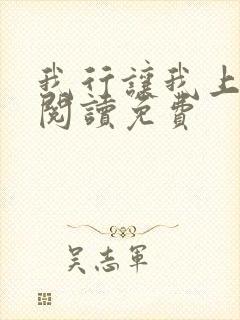 我行讓我上
閱讀免費
吴志軍